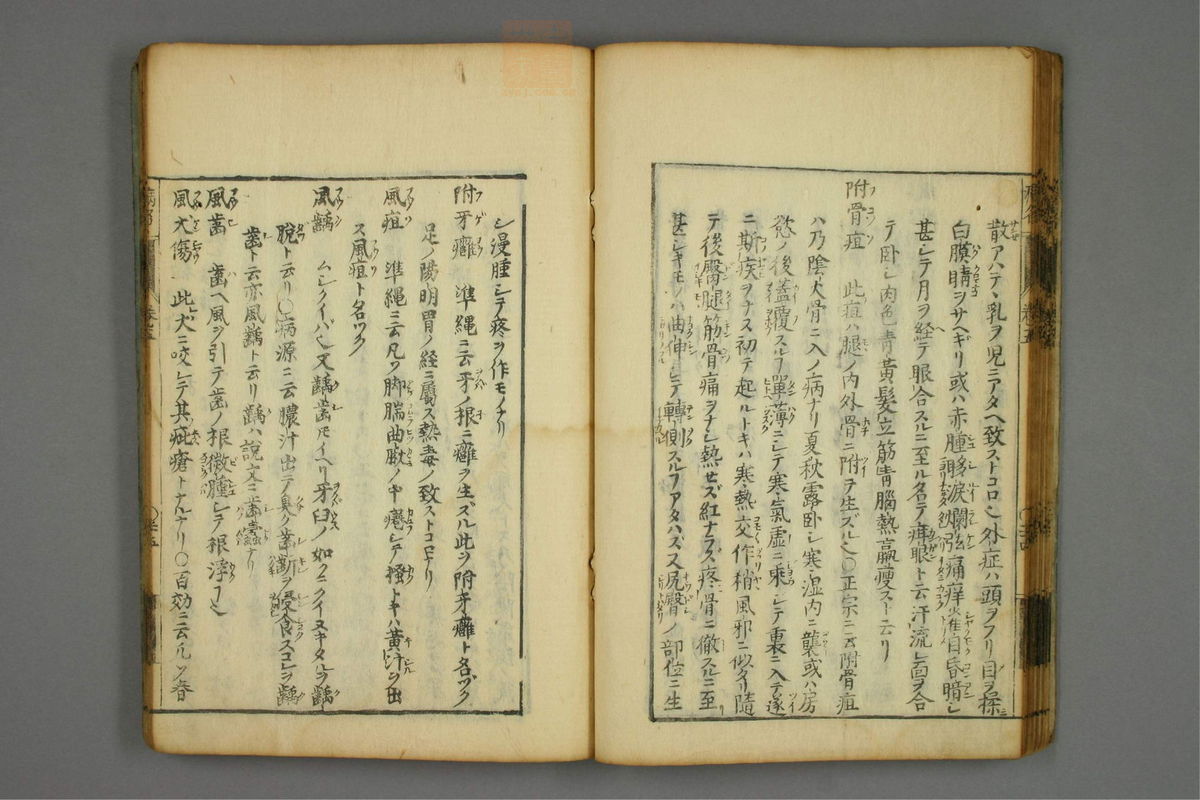 散アハテヽ乳ヲ児ニアタヘ致ストコロ也外症ハ頭ヲフリ目ヲ揉
白膜睛ヲサヘギリ或ハ赤腫眵涙爛弦痛痒雀目昏暗シ
甚シテ月ヲ経テ眼合スルニ至ル名テ疳眼ト云汗流レ面ヲ合
テ卧シ肉色青黄髪立筋青腦熱羸瘦スト云リ
附骨疽 此疽ハ腿ノ内外骨ニ附テ生ズル也〇正宗ニ云附骨疽
ハ乃陰人骨ニ入ノ病ナリ夏秋露卧シ寒湿内ニ襲或ハ房
慾ノ後蓋覆スルヿ單薄ニシテ寒氣虚ニ乘シテ裏ニ入テ遂
ニ斯疾ヲナス初テ起ルトキハ寒熱交作稍風邪ニ似タリ隨
テ後臀腿筋骨痛ヲナシ熱セズ紅ナラズ疼骨ニ徹スルニ至
甚シキモノハ曲伸シテ轉側スルヿアタハズス尻臀ノ部位ニ生
シ漫腫シテ疼ヲ作モノナリ
附牙癰 準縄ニ云牙ノ根ニ癰ヲ生ズル此ヲ附牙癰ト名ヅク
足ノ陽明胃ノ経ニ屬ス熱毒ノ致ストコロナリ
風疽 準縄ニ云凡ソ脚腨曲䐐ノ中癢シテ搔トキハ黄汁ヲ出
ス風疽ト名ヅク
風齲 ムシクイバ也又齲歯モイヘリ牙臼ノ如クニクイヌキタルヲ齲
脱ト云リ〇病源ニ云膿汁出テ臭ク歯齗ヲ侵食スコレヲ齲
歯ト云亦風齲ト云リ齲ハ説文ニ歯蠹ナリ
風歯 歯ヘ風ヲ引テ歯ノ根微腫シテ根浮ク也
風犬傷 此犬ニ咬レテ其疵瘡トナルナリ〇百効ニ云凡ソ春